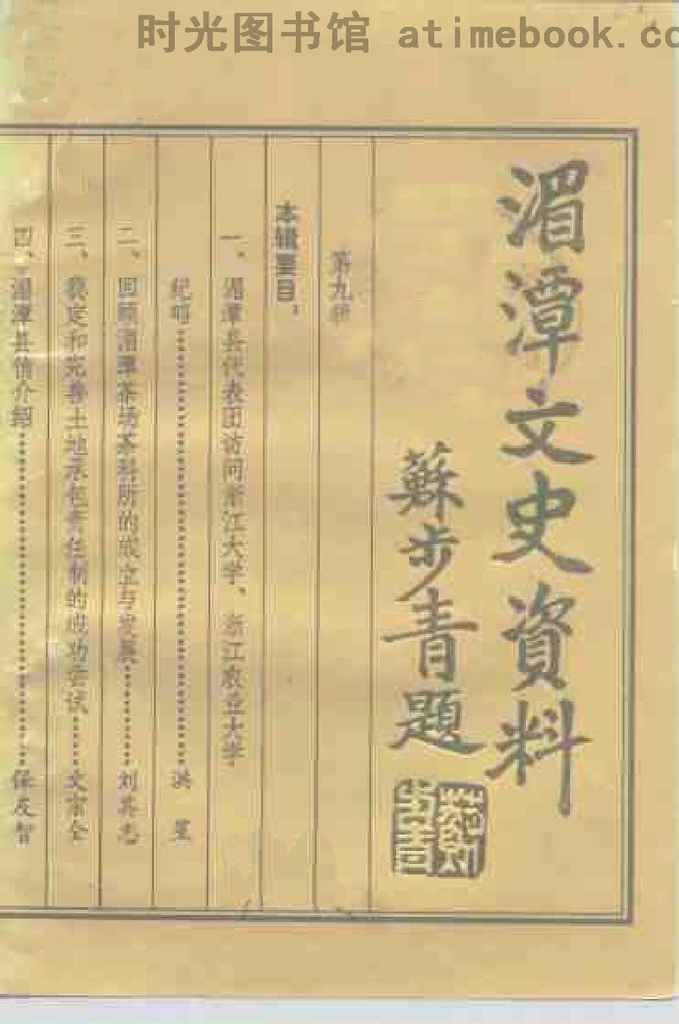 时光图书馆 atimebook.co
湄潭文史資料
蘇步青題
第九辑
本辑要目：
一、湄潭县代表团访问浙江大学、浙江农业大学
纪明 洪星
二、回顾湄潭茶场茶科所的成立与发展 刘其志
三、稳定和完善土地承包责任制的成功尝试 文宗全
四、湄潭县情介绍 保友智